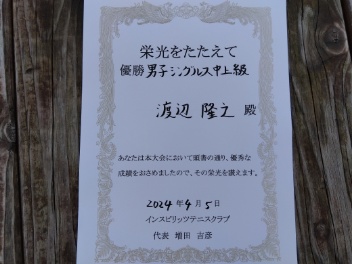 栄光をたたえて
優勝 男子シングルス中上級
渡辺 隆之 殿
あなたは本大会において頭書の通り、優秀な
成績をおさめましたので、その栄光を讃えます。
2024年9月5日
インスピリッツテニスクラブ
代表 増田 吉彦